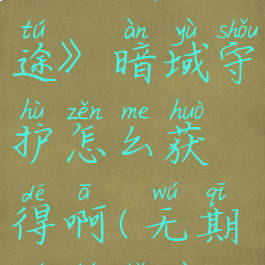 tú àn yù shǒu
途》暗域守
hù zěn me huò
护怎么获
dé ā wú qī
得啊(无期